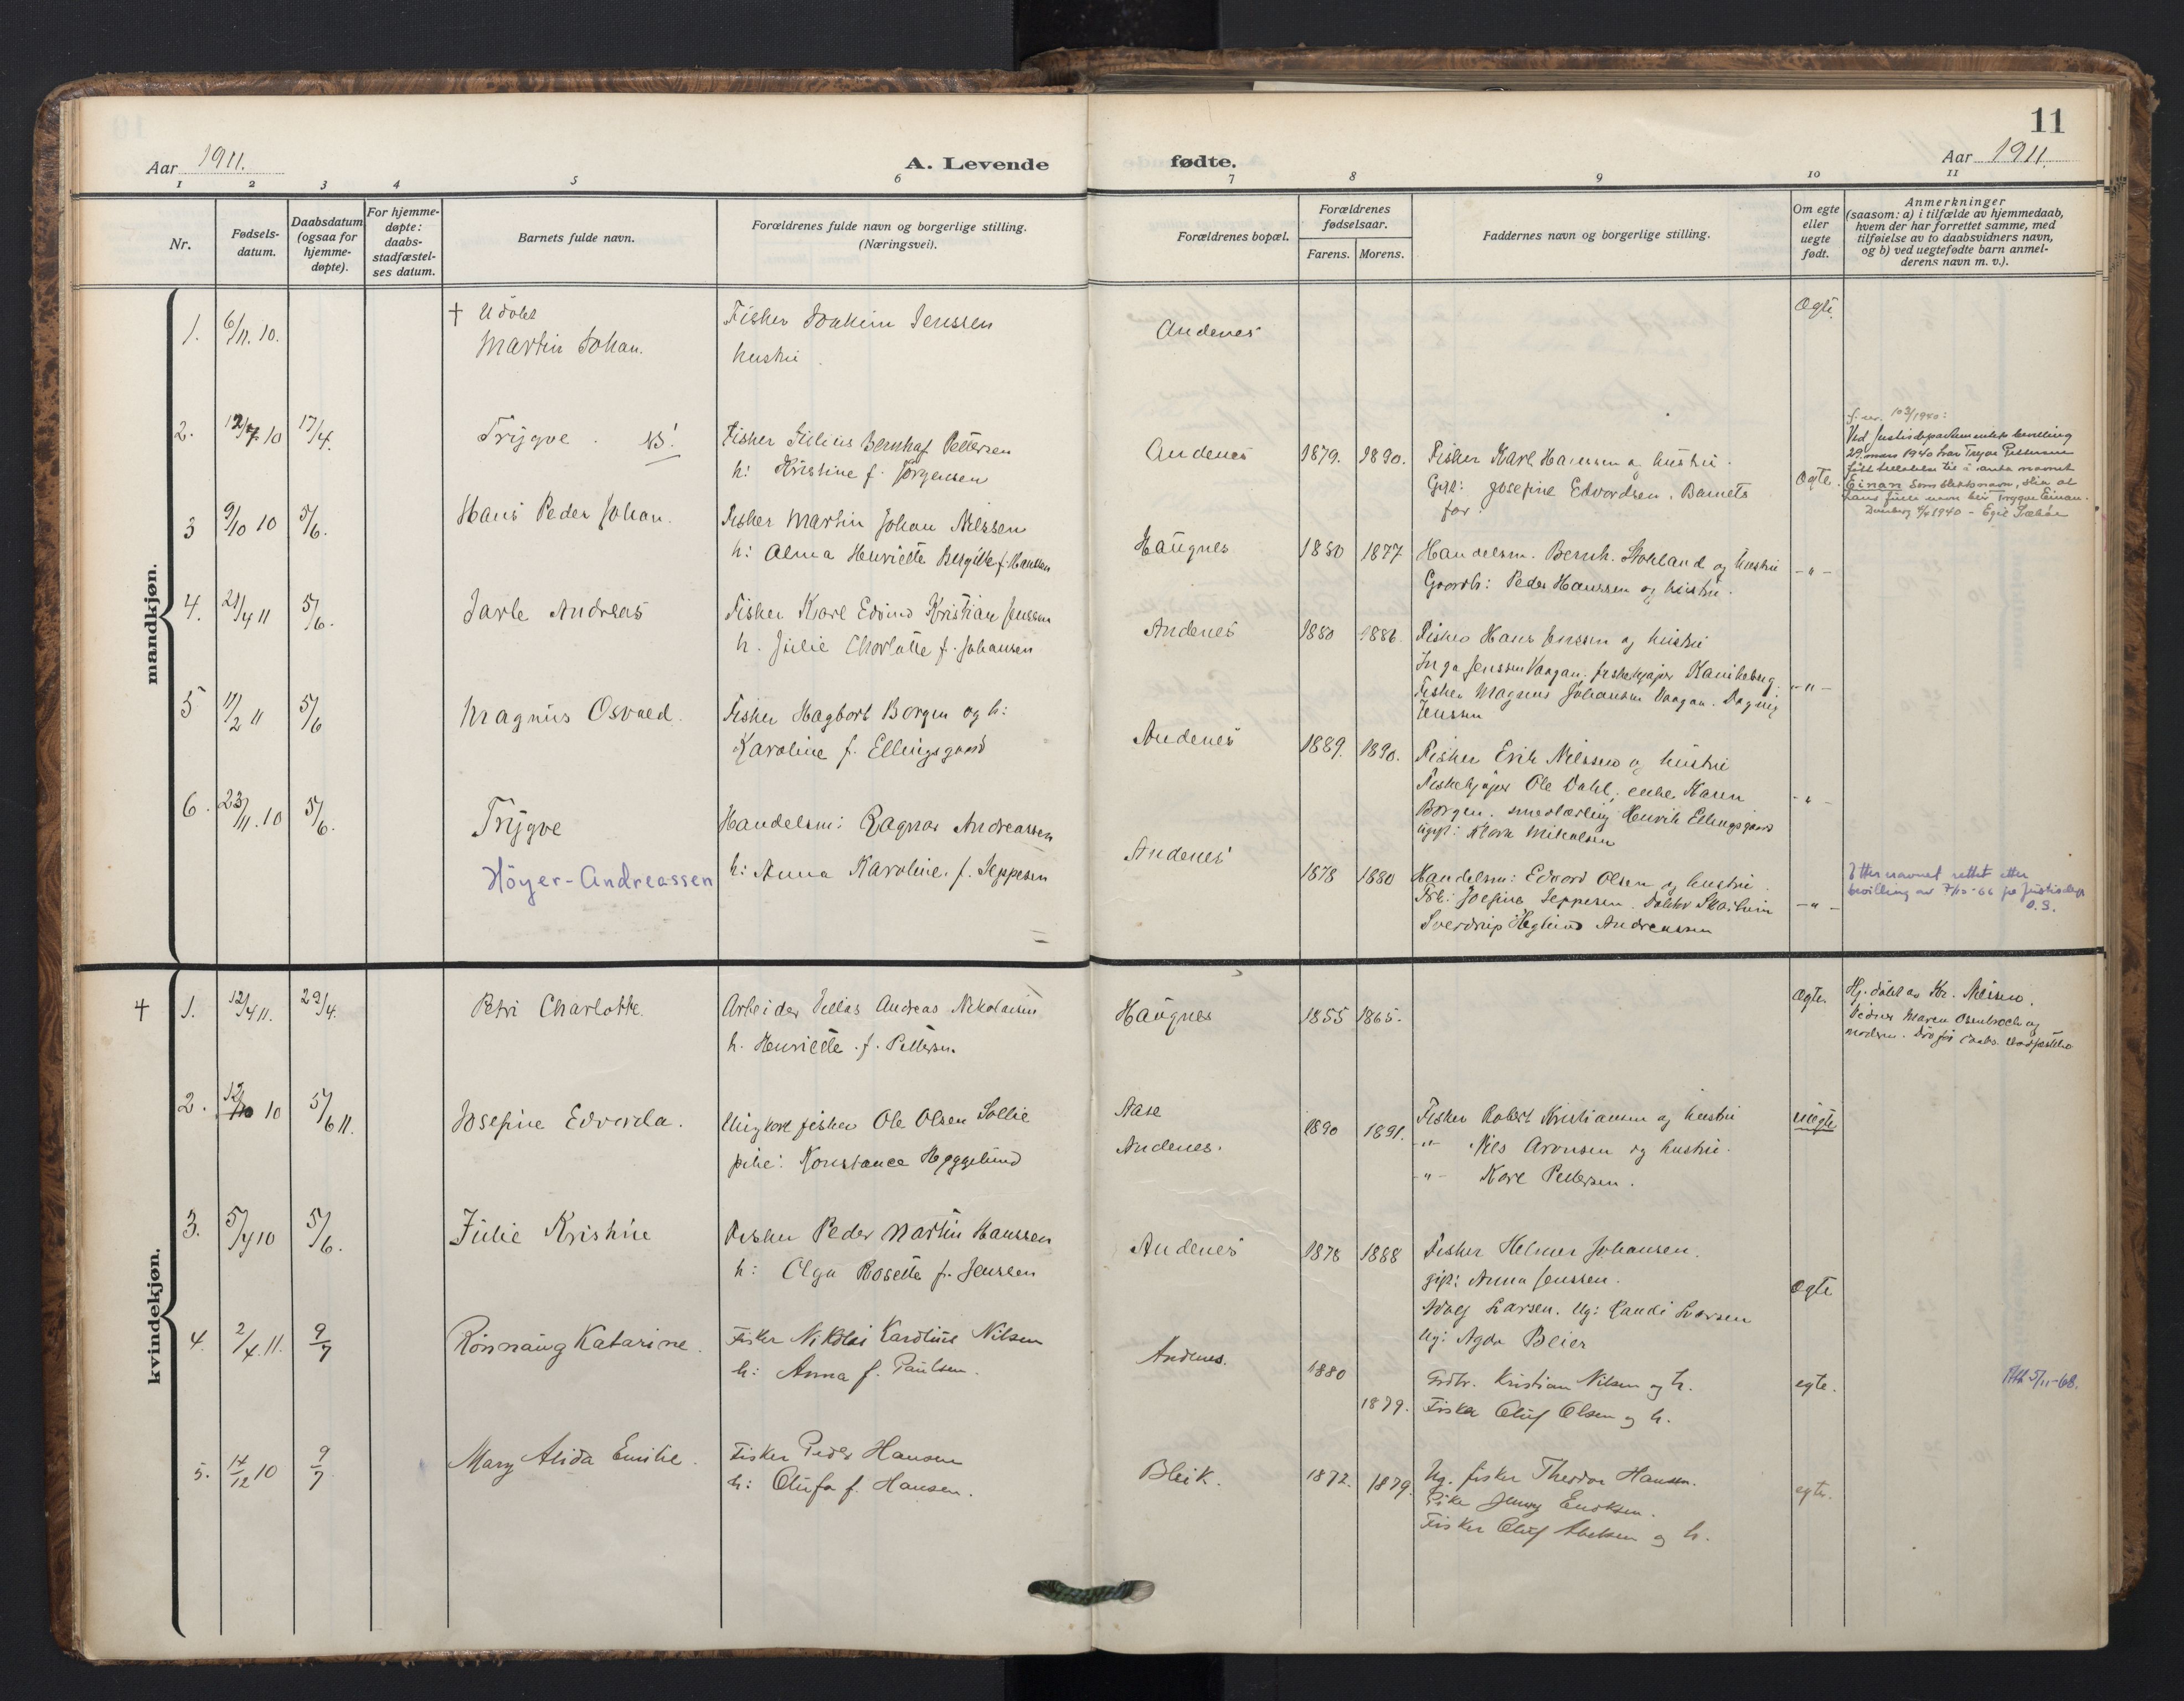 11
Aar 1911. A. Levende fødte. Aar 1911
1 2 3 4 5 6 7 8 9 10 11
Nr.
Fødsels-
datum.
Daabsdatum
(ogsaa for
hjemme-
døpte).
For hjemme-
døpte:
daabs-
stadfæstel-
ses datum.
Barnets fulde navn.
Forældrenes fulde navn og borgerlige stilling.
(Næringsvei).
Forældrenes bopæl.
Forældrenes
fødselsaar.
Farens. Morens.
Faddernes navn og borgerlige stilling.
Om egte
eller
uegte
født.
Anmerkninger
(saasom: a) i tilfælde av hjemmedaab,
hvem der har forrettet samme, med
tilføielse av to daabsvidners navn,
og b) ved uegtefødte barn anmel-
derens navn m. v.).
mandkjøn.
1. 6/11. 10. † Udöbt
Martin Johan.
Fisher Joakim Jenssen
hustru
Andenes
Ægte.
2. 12/7 10 17/4. Trygve . NB!
Fisher Julius Bernhaf Pettersen
h: Kristine f. Jørgensen
Andenes 1879. 1890.
Fisher Karl Hanssen og hustru.
Josefine Edvardsen. Barnets
far.
Ægte.
Ved Justisdepartementets bevilling
29. mars 1940 har Trygve Pettersen
fått tillatelse til å anta navnet
Einan som slektsnavn, slik at
hans fulle navn blir Trygve Einan.
3 9/10 10 5/6. Hans Peder Johan.
Fisher Martin Johan Nilssen
h: Alma Henriette Bergitte f. Hanssen
Haugnes 1880 1877
Handelsm. Bernh. Stokland og hustru
Gaardb: Peder Hanssen og hustru.
- " -
4. 21/4 11 5/6. Jarle Andreas
Fisher Karl Edvind Kristian Jenssen
h. Julie Charlotte f. Johansen
Andenes 1880 1886.
Fisher Hans Jenssen og hustru
Inga Jenssen Vaagan. fiskekjøper Kanikeberg.
Fisher Magnus Johansen Vaagan. Dagny
Jenssen
- " -
5 11/2 11 5/6 Magnus Osvald.
Fisher Hagbart Borgen og h:
Karoline f. Ellingsgaard
Andenes 1889. 1890.
Fisher Erik Nilssen og hustru
Fiskekjøper Ole Dahl, enke Karen
Borgen. smedlærling Henrik Ellingsgaard
ugift: Klara Mikalsen
- " -
6. 23/11. 10 5/6. Trygve
Höyer-Andreassen
Handelsm: Ragnar Andreassen
h: Anna Karoline. f. Jeppesen
Andenes 1878 1880
Handelsm: Edvard Olsen og hustru.
Frk: Josefine Jeppesen. Doktor
Sverdrup Høglund Andreassen
- " -
Etternavnet rettet etter
bevilling av 7/10-66 fra Justisdep.
O.S.
kvindekjøn.
† 1. 12/4 11. 29/4. Petri Charlotte.
Arbeider Andreas Nikolaisen
h. Henriette . f. Pettersen.
Haugnes 1855 1865.
Ægte.
Hj. døbt av Kr. Nilssen.
Vidner Maren Osenbroch og
moderen. Død før daabs. stadfæstelse
2. 12/10 10 5/6 11. Josefine Edvarda.
Ungkarl fisher Ole Olsen Sollie
pike: Konstance Heggelund
Aase
Andenes.
1890 1891.
Fisher Robert Kristiansen og hustru
-"- Nils Aronsen og hustru.
-"- Karl Pettersen.
uægte
3. 5/7 10 5/6. Julie Kristine
Fisher Peder Martin Hanssen
h: Olga Rosette f. Jenssen
Andenes 1878 1888
Fisher Helmer Johansen.
gift: Anna Jenssen.
Larsen. Ug: Randi Larsen
Ug: Agda Beier
Ægte
4. 2/4. 11. 9/7 Rönnaug Katarine.
Fisker Nikolai Karolius Nilsen
h: Anna f. Paulsen.
Andenes. 1880 1879.
Grdbr. Kristian Nilsen og h.
Fisker Oluf Olsen og h.
egte.
5/11-68.
5. 14/12 10 9/7 Mary Alida Emilie.
Fisker Peder Hansen
h: Olufa f. Hansen.
Bleik. 1872. 1879.
Ug. fisker Theodor Hansen.
Pike Jenny Enoksen.
Fisker Oluf Abelsen og h.
egte.